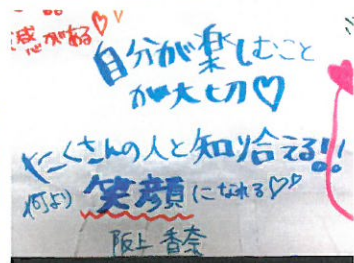 感がある♡♡
自分が楽しむこと
が大切♡
たくさんの人と知り合える!!
何より笑顔になれる♡♡
阪上 香奈